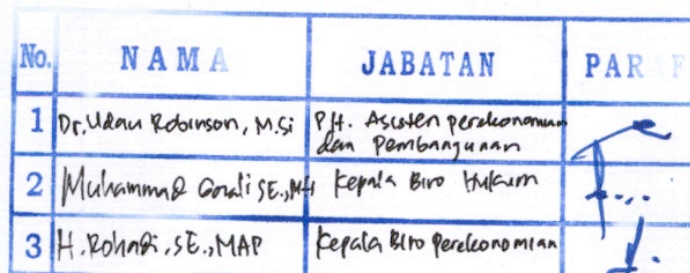 No. NAMA JABATAN PARAF
1 Dr. Udau Robinson, M.Si PH. Asisten perekonomian
dan Pembangunan
2 Muhammad SE., MH Kepala Biro Hukum
3 H. Rohadi, SE., MAP Kepala Biro perekonomian